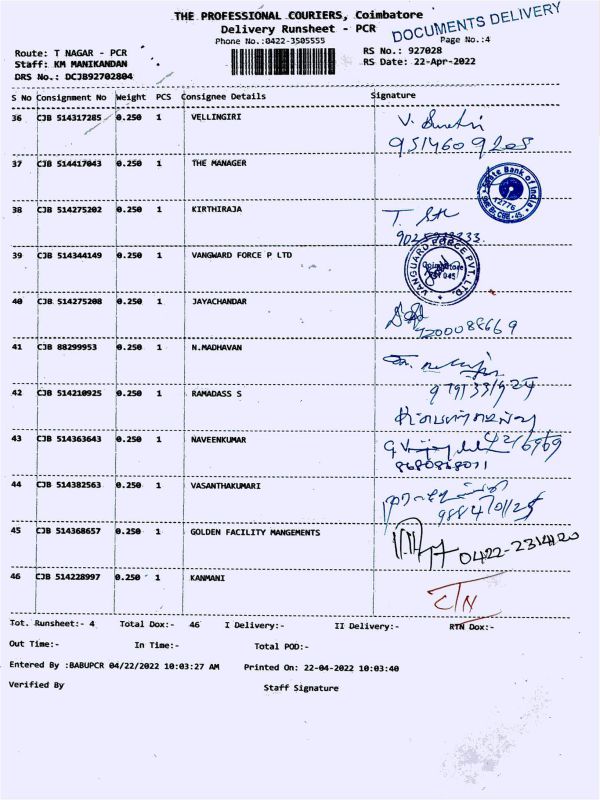 THE PROFESSIONAL COURIERS, Coimbatore
DOCUMENTS DELIVERY
Delivery Runsheet - PCR
Phone No.:0422-3505555
Page No.:4
Route: T NAGAR - PCR
RS No.: 927028
Staff: KM MANIKANDAN
RS Date: 22-Apr-2022
DRS No.: DCJB92702804
S No Consignment No Weight PCS Consignee Details Signature
36 CJB 514317285 0.250 1 VELLINGIRI
37 CJB 514417043 0.250 1 THE MANAGER
State Bank of India
38 CJB 514275202 0.250 1 KIRTHIRAJA
39 CJB 514344149 0.250 1 VANGWARD FORCE P LTD
VANGUARD FORCE PVT. LTD.
Coimbatore
40 CJB 514275208 0.250 1 JAYACHANDAR
7200088669
41 CJB 88299953 0.250 1 N.MADHAVAN
42 CJB 514210925 0.250 1 RAMADASS S
43 CJB 514363643 0.250 1 NAVEENKUMAR
44 CJB 514382563 0.250 1 VASANTHAKUMARI
45 CJB 514368657 0.250 1 GOLDEN FACILITY MANGEMENTS
46 CJB 514228997 0.250 1 KANMANI
Tot. Runsheet:- 4 Total Dox:- 46 I Delivery:- II Delivery:- RTN Dox:-
Out Time:- In Time:- Total POD:-
Entered By :BABUPCR 04/22/2022 10:03:27 AM Printed On: 22-04-2022 10:03:40
Verified By Staff Signature